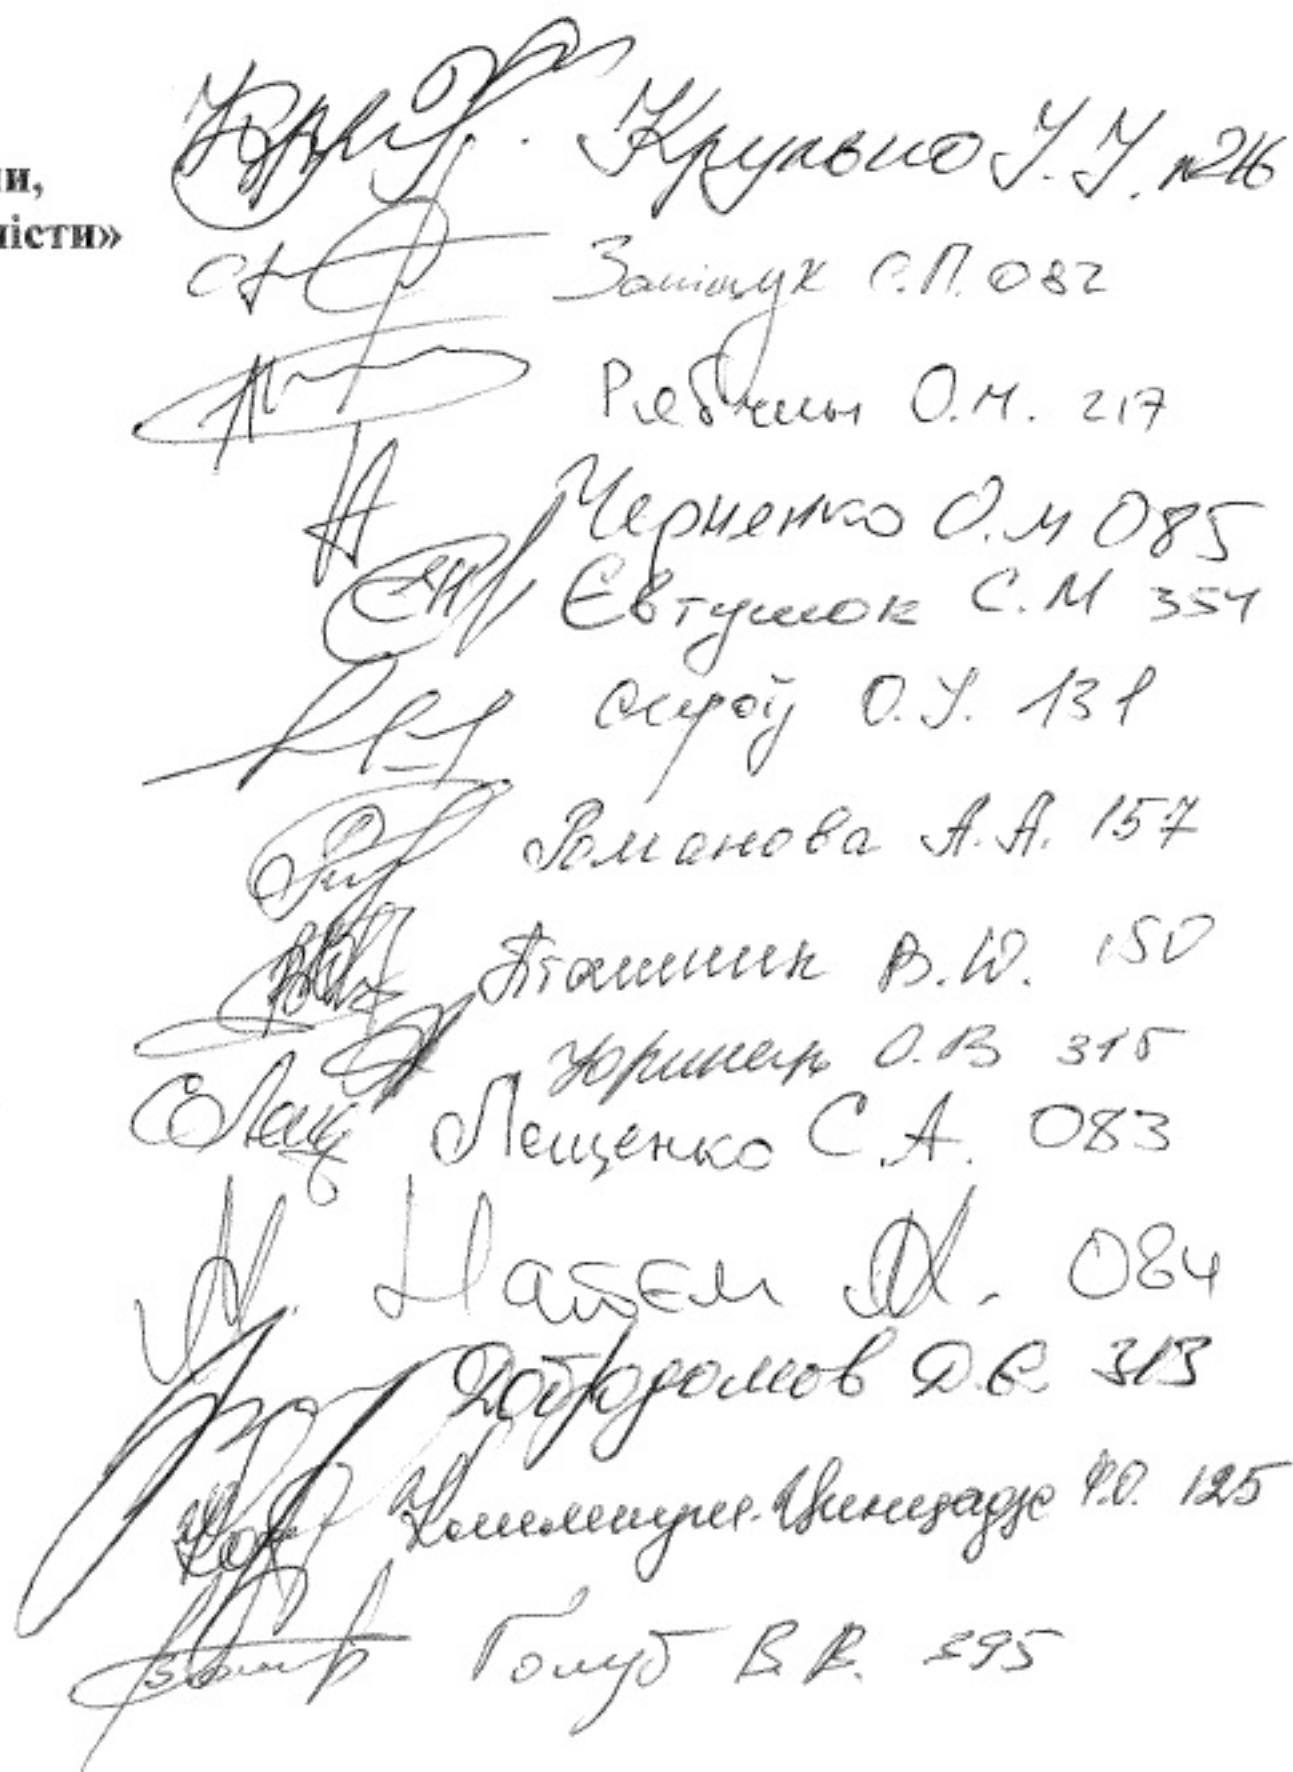 ии,
лісти»
Крулько І.І. №216
Заліщук С.П. 082
Рябчин О.М. 217
Черненко О.М 085
Євтушок С.М 354
О.І. 131
Романова А.А. 157
Пташник В.Ю. 150
Юринець О.В 315
Лещенко С.А. 083
Найєм М. 084
Добродомов Д.Є. 313
Климпуш-Цинцадзе І.О. 125
Голуб В.В. 395